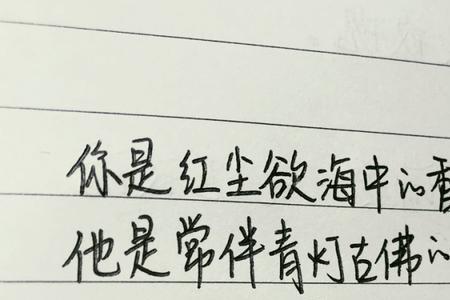 你是红尘欲海中的香
他是常伴青灯古佛的